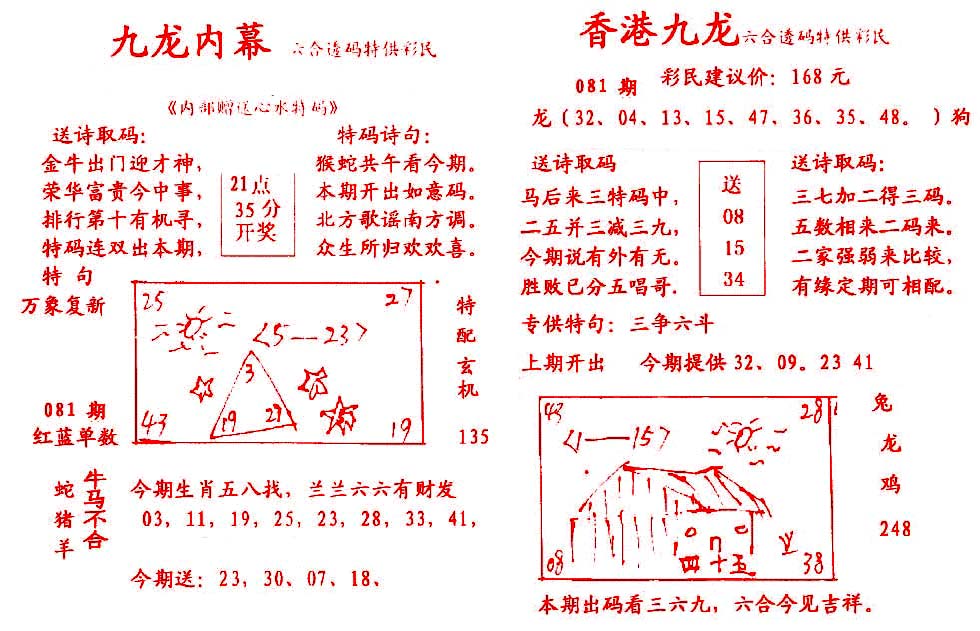 九龙内幕 六合透码特供彩民
《内部赠送心水特码》
送诗取码：
金牛出门迎才神，
荣华富贵今中事，
排行第十有机寻，
特码连双出本期，
特 句
万象复新
21点
35分
开奖
特码诗句：
猴蛇共午看今期。
本期开出如意码。
北方歌谣南方调。
众生所归欢欢喜。
25 27
〈5—23〉
3
19 27
43 19
特配玄机
135
081 期
红蓝单数
蛇猪羊
牛马不合
今期生肖五八找，兰兰六六有财发
03，11，19，25，23，28，33，41，
今期送：23，30、07、18、
香港九龙 六合透码特供彩民
081 期 彩民建议价：168 元
龙（32、04、13、15、47、36、35、48。）狗
送诗取码
马后来三特码中，
二五并三减三九，
今期说有外有无。
胜败已分五唱哥.
送
08
15
34
送诗取码：
三七加二得三码。
五数相来二码来。
二家强弱来比较，
有缘定期可相配。
专供特句：三争六斗
上期开出 今期提供 32、09。23 41
43 28
〈1—15〉
四十五
08 38
兔
龙
鸡
248
本期出码看三六九，六合今见吉祥。